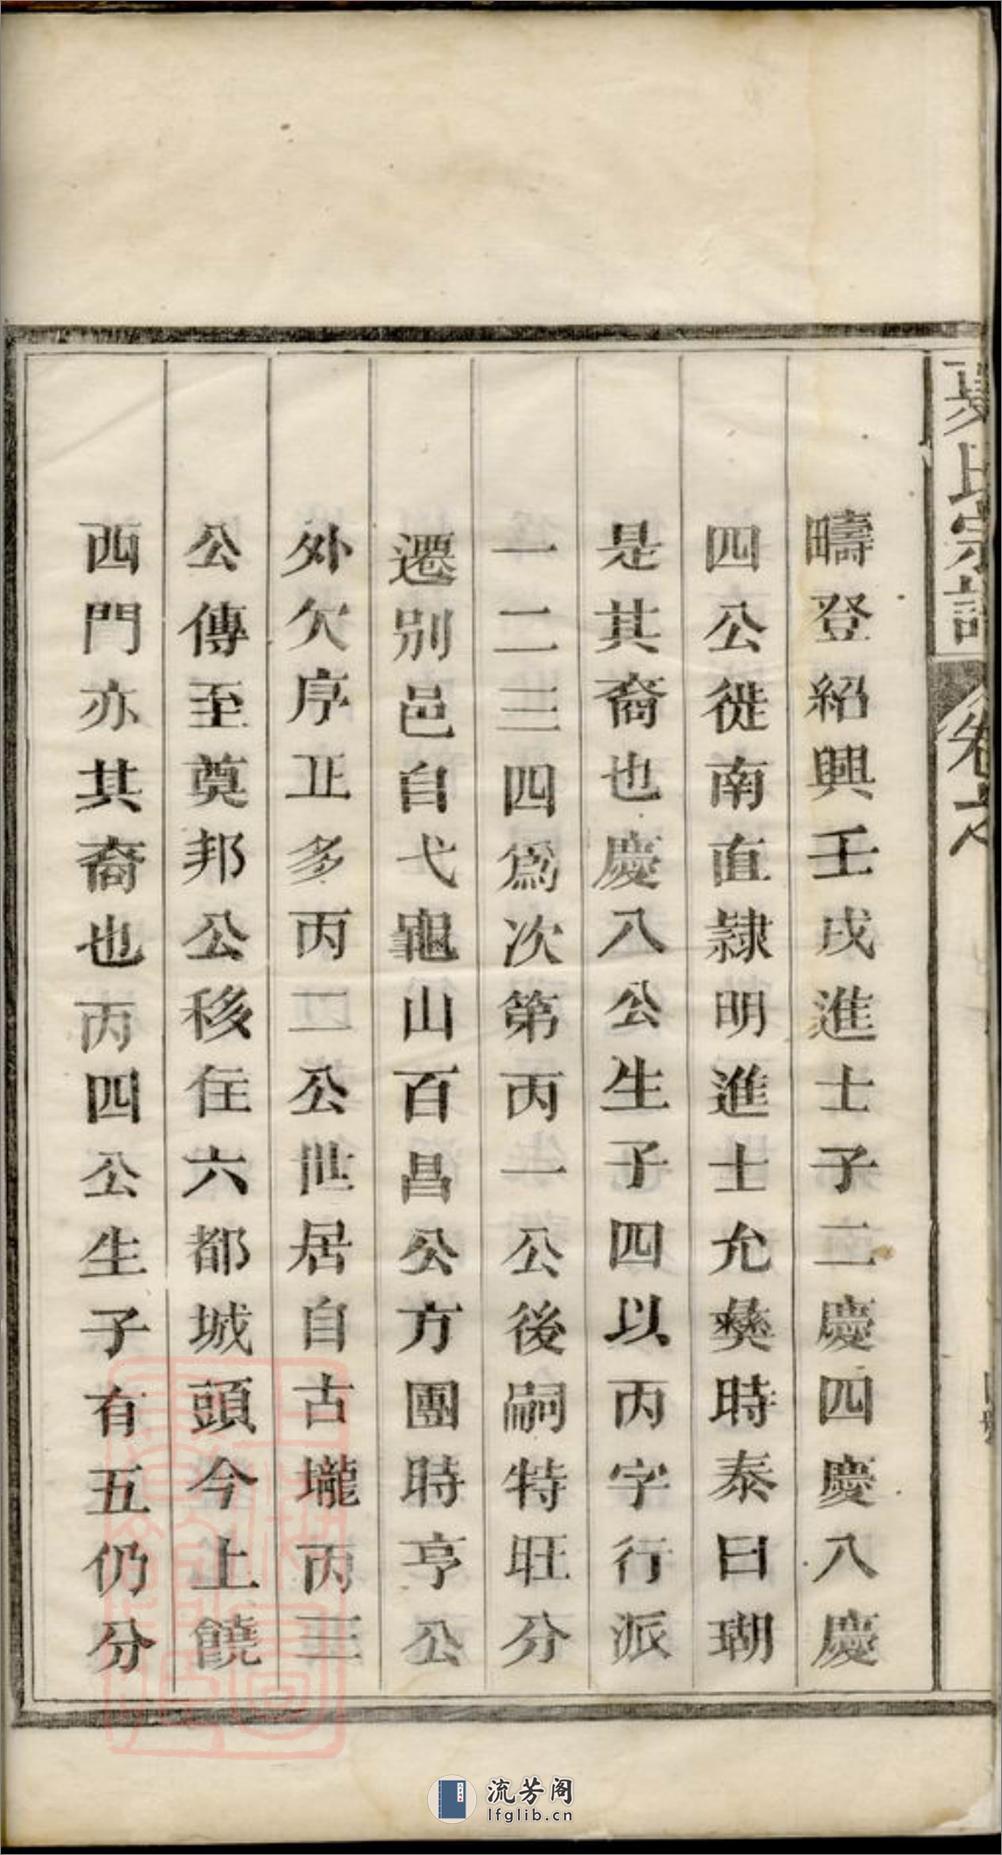 氏宗譜
卷之
疇登紹興壬戌進士子二慶四慶八慶
四公徙南直隸明進士允彝時泰曰瑚
是其裔也慶八公生子四以丙字行派
一二三四爲次第丙一公後嗣特旺分
遷别邑自弋龜山百昌公方團時亨公
外欠序正多丙二公世居自古壠丙三
公傳至奠邦公移住六都城頭今上饒
西門亦其裔也丙四公生子有五仍分
流芳阁
lfglib.cn